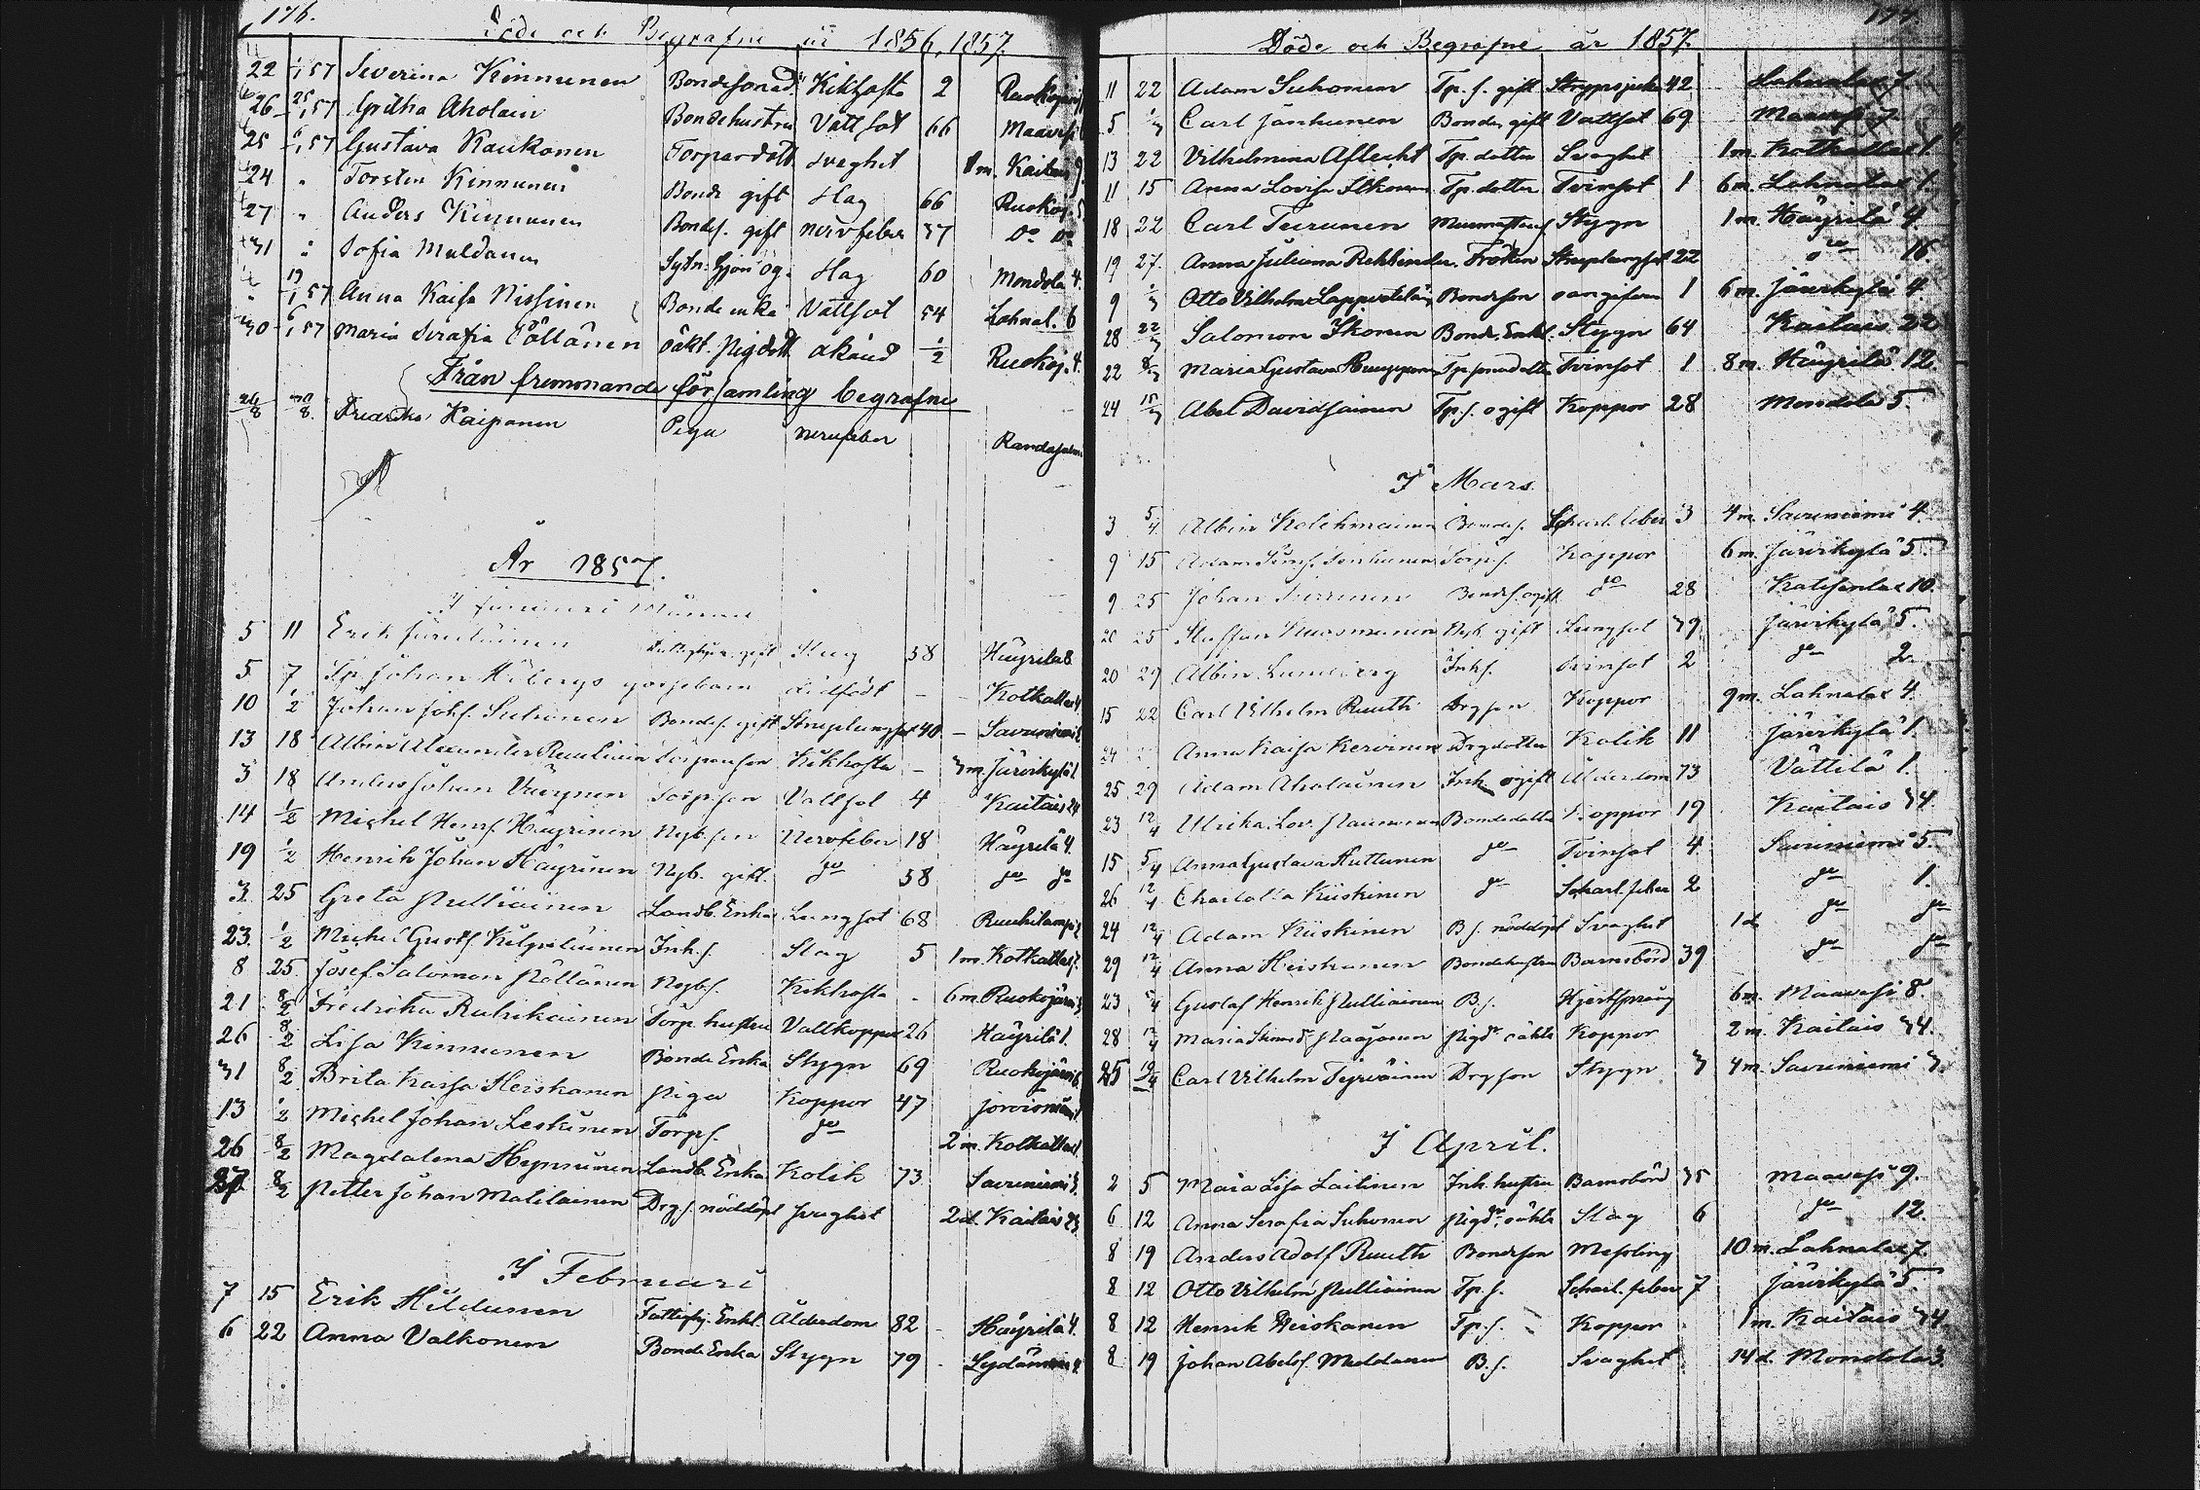 176.
Döde och Begrafne år 1856, 1857.
22 1/1 57 Severina Kinnunen Bondesons d. Kikhosta 2 Ruokojärvi
26 25/1 57 Gretha Aholain Bondehustru Vattsot 66 Maavesi
25 6/1 57 Gustava Kaukonen Torpardott. svaghet 1 m. Kaitais 9.
24 " Torsten Kinnunen Bonde gift Slag 66 Ruokoj. 5
27 " Anders Kinnunen Bondes. gift nervfeber 37 Do Do
31 " Sofia Muldanen Sytn. hjon og. Slag 60 Mondola 4.
" 19/1 57 Anna Kaisa Nissinen Bonde enka Vattsot 54 Lahnal. 6
30 6/1 57 Maria Serafia Pöllänen oäkt. Pigdott. okänd 1/2 Ruokoj. 4.
Från fremmande församling begrafne
26/8 30/8 Fredrika Kaipanen Piga nervfeber Randasalmi
År 1857.
I Januari Månad
5 11 Erik Slag 58 Häyrilä 8
5 7 Tp. Johan dödfödt - - Kotkatlax 4
10 1/2 Johan Johs. Suhonen Bondes. gift Struplungsot 40 - Savuniemi 2
13 18 Albin Alexander Pulliain Torpareson Kikhosta - 3 m. Järvikylä 1.
3 18 Anders Johan Torpson Vattsot 4 Kaitais 24
14 1/2 Michel Henrs. Häyrinen Nyb. son Nervfeber 18 Häyrilä 4.
19 1/2 Henrik Johan Häyrinen Nyb. gift. do 58 do do
3 25 Greta Pulliainen Landb. Enka Lungsot 68 Ruuhilampi 2
23 1/2 Michel Gusts. Inh. s. Slag 5 1 m. Kotkatlax 7.
8 25. Josef Salomon Pöllänen Nybs. Kikhosta - 6 m. Ruokojärvi 3
21 8/2 Fredrika Ruhikainen Torp. hustru Vattkoppor 26 Häyrilä 1.
26 8/2 Lisa Kinnunen Bonde Enka Stygn 69 Ruokojärvi 6
31 8/2 Brita Kaisa Heiskanen Piga Koppor 47 Jorvismäki
13 1/2 Michel Johan Leskinen Torps. do 2 m. Kotkatlax
26 8/2 Magdalena Hynninen Landb. Enka Kolik 73. Savuniemi 3.
27 8/2 Petter Johan Matilainen Drg s. nöddöpt svaghet 2 d. Kaitais 23
I Februari
7 15 Erik Hildunen Fattighj. Enkl. Ålderdom 82 - Häyrilä 4.
6 22 Anna Valkonen Bonde Enka Stygn 79 - Sydänmaa 4.
177.
Döde och Begrafne år 1857.
11 22 Adam Suhonen Tp. s. gift Strypsjuka 42 Lahnalax 7.
5 1/3 Carl Jänhunen Bonde gift Vattsot 69 Maavesi 7
13 22 Vilhelmina Aflecht Tp. dotter Svaghet 1 m. Kotkatlax 1.
11 15 Anna Lovisa Ikonen Tp. dotter Tvinsot 1 6 m. Lahnalax 1.
18 22 Carl Teirunen Stygn 1 m. Häyrilä 4.
19 27. Anna Juliana Rehbinder. Fröken Struplungsot 22 do 16.
9 1/3 Otto Vilhelm Lappveteläin Bondeson oangifven 1 6 m. Järvikylä 4.
28 22/3 Salomon Ikonen Bonde. Enkl. Stygn 64 Kaitais 22
22 8/3 Maria Gustava Tp. sonsdotter Tvinsot 1 8 m. Häyrilä 12.
24 15/3 Abel Davidsainen Tp. s. ogift Koppor 28 Mondola 5.
I Mars.
3 5/4 Albin Kolehmainen Bondes. Scharl. feber 3 4 m. Savuniemi 4.
9 15 Adam Torps. Koppor 6 m. Järvikylä 5.
9 25 Johan Bondes. ogift do 28 Katisenlax 10.
20 25 Staffan Kuosmanen Nyb. gift Lungsot 39. Järvikylä 5.
20 29 Albin Lundberg Inhs. Tvinsot 2 do 2.
15 22 Carl Vilhelm Ruuth Drg son Koppor 9 m. Lahnalax 4.
24 Anna Kaisa Kervinen Drgdotter Kolik 11 Järvikylä 1.
25 29 Adam Aholainen Inh. ogift Ålderdom 73 Vättilä 1.
23 12/4 Ulrika Lov. Naumanen Bondedotter Koppor 19 Kaitais 34.
15 5/4 Anna Gustava Kuttunen do Tvinsot 4. Savuniemi 5.
26 12/4 Charlotta Kiiskinen do Scharl. feber 2 do 1.
24 12/4 Adam Kiiskinen B s. nöddöpt Svaghet 1 d. do do
29 12/4 Anna Heiskanen Bondehustru Barnsbörd 39 do do
23 5/4 Gustaf Henrik Pulliainen B s. Hjertsprång 6 m. Maavesi 8.
28 12/4 Maria Pigdr oäkta Koppor 2 m. Kaitais 34.
25 19/4 Carl Vilhelm Teirväinen Drg son Stygn 3 4 m. Savuniemi 3.
I April.
2 5 Maia Lisa Laitinen Inh. hustru Barnsbörd 35 Maavesi 9.
6 12 Anna Serafia Suhonen Pigdr. oäkta Slag 6 do 12.
8 19 Anders Adolf Ruuth Bondeson Messling 10 m. Lahnalax 7.
8 12 Otto Vilhelm Pulliainen Tp. s. Scharl. feber 7 Järvikylä 5.
8 12 Henrik Heiskanen Tp. s. Koppor 1 m. Kaitais 34.
8 19 Johan Abels. Muldanen B. s. Svaghet 14 d. Mondola 3.